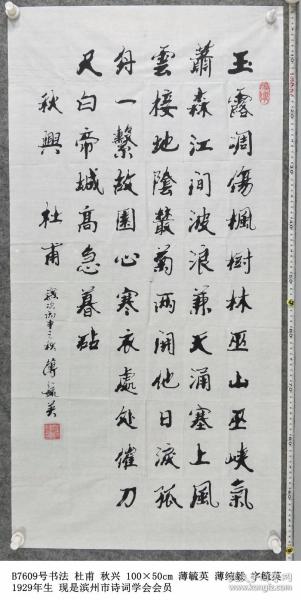 玉露凋傷楓樹林巫山巫峽氣
蕭森江間波浪兼天涌塞上風
雲接地陰叢菊兩開他日淚孤
舟一繫故園心寒衣處处催刀
尺白帝城高急暮砧
秋興 杜甫
薄毓英
B7609号书法 杜甫 秋兴 100×50cm 薄毓英 薄纯毅 字毓英
1929年生 现是滨州市诗词学会会员